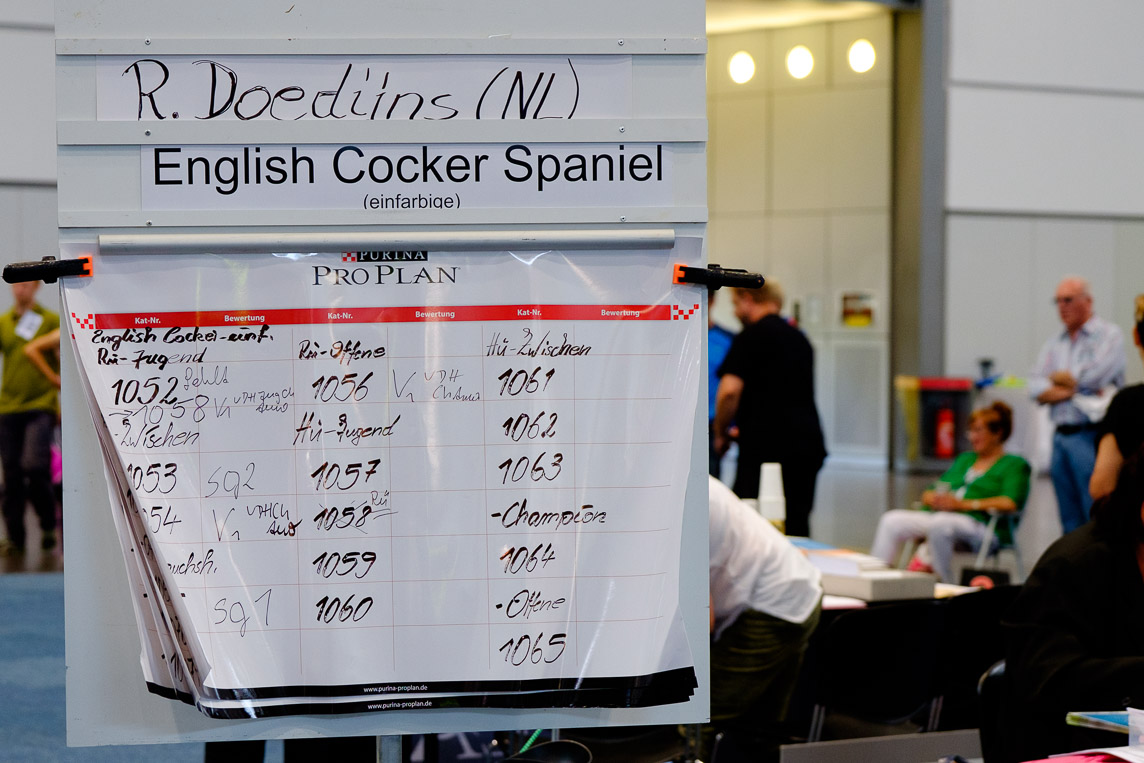 R. Doedijns (NL)
English Cocker Spaniel
(einfarbige)
PURINA
PRO PLAN
Kat-Nr. Bewertung Kat-Nr. Bewertung Kat-Nr. Bewertung
English Cocker-einf.
Rü-Jugend Rü-Offene Hü-Zwischen
1052 fehlt 1056 V1 VDH 1061
1058 V1 VDH
Zwischen Hü-Jugend 1062
1053 sg2 1057 1063
54 V1 VDHCh 1058 Rü -Champion
uchsh. 1059 1064
sg1 1060 -Offene
1065
www.purina-proplan.de
www.purina-proplan.de